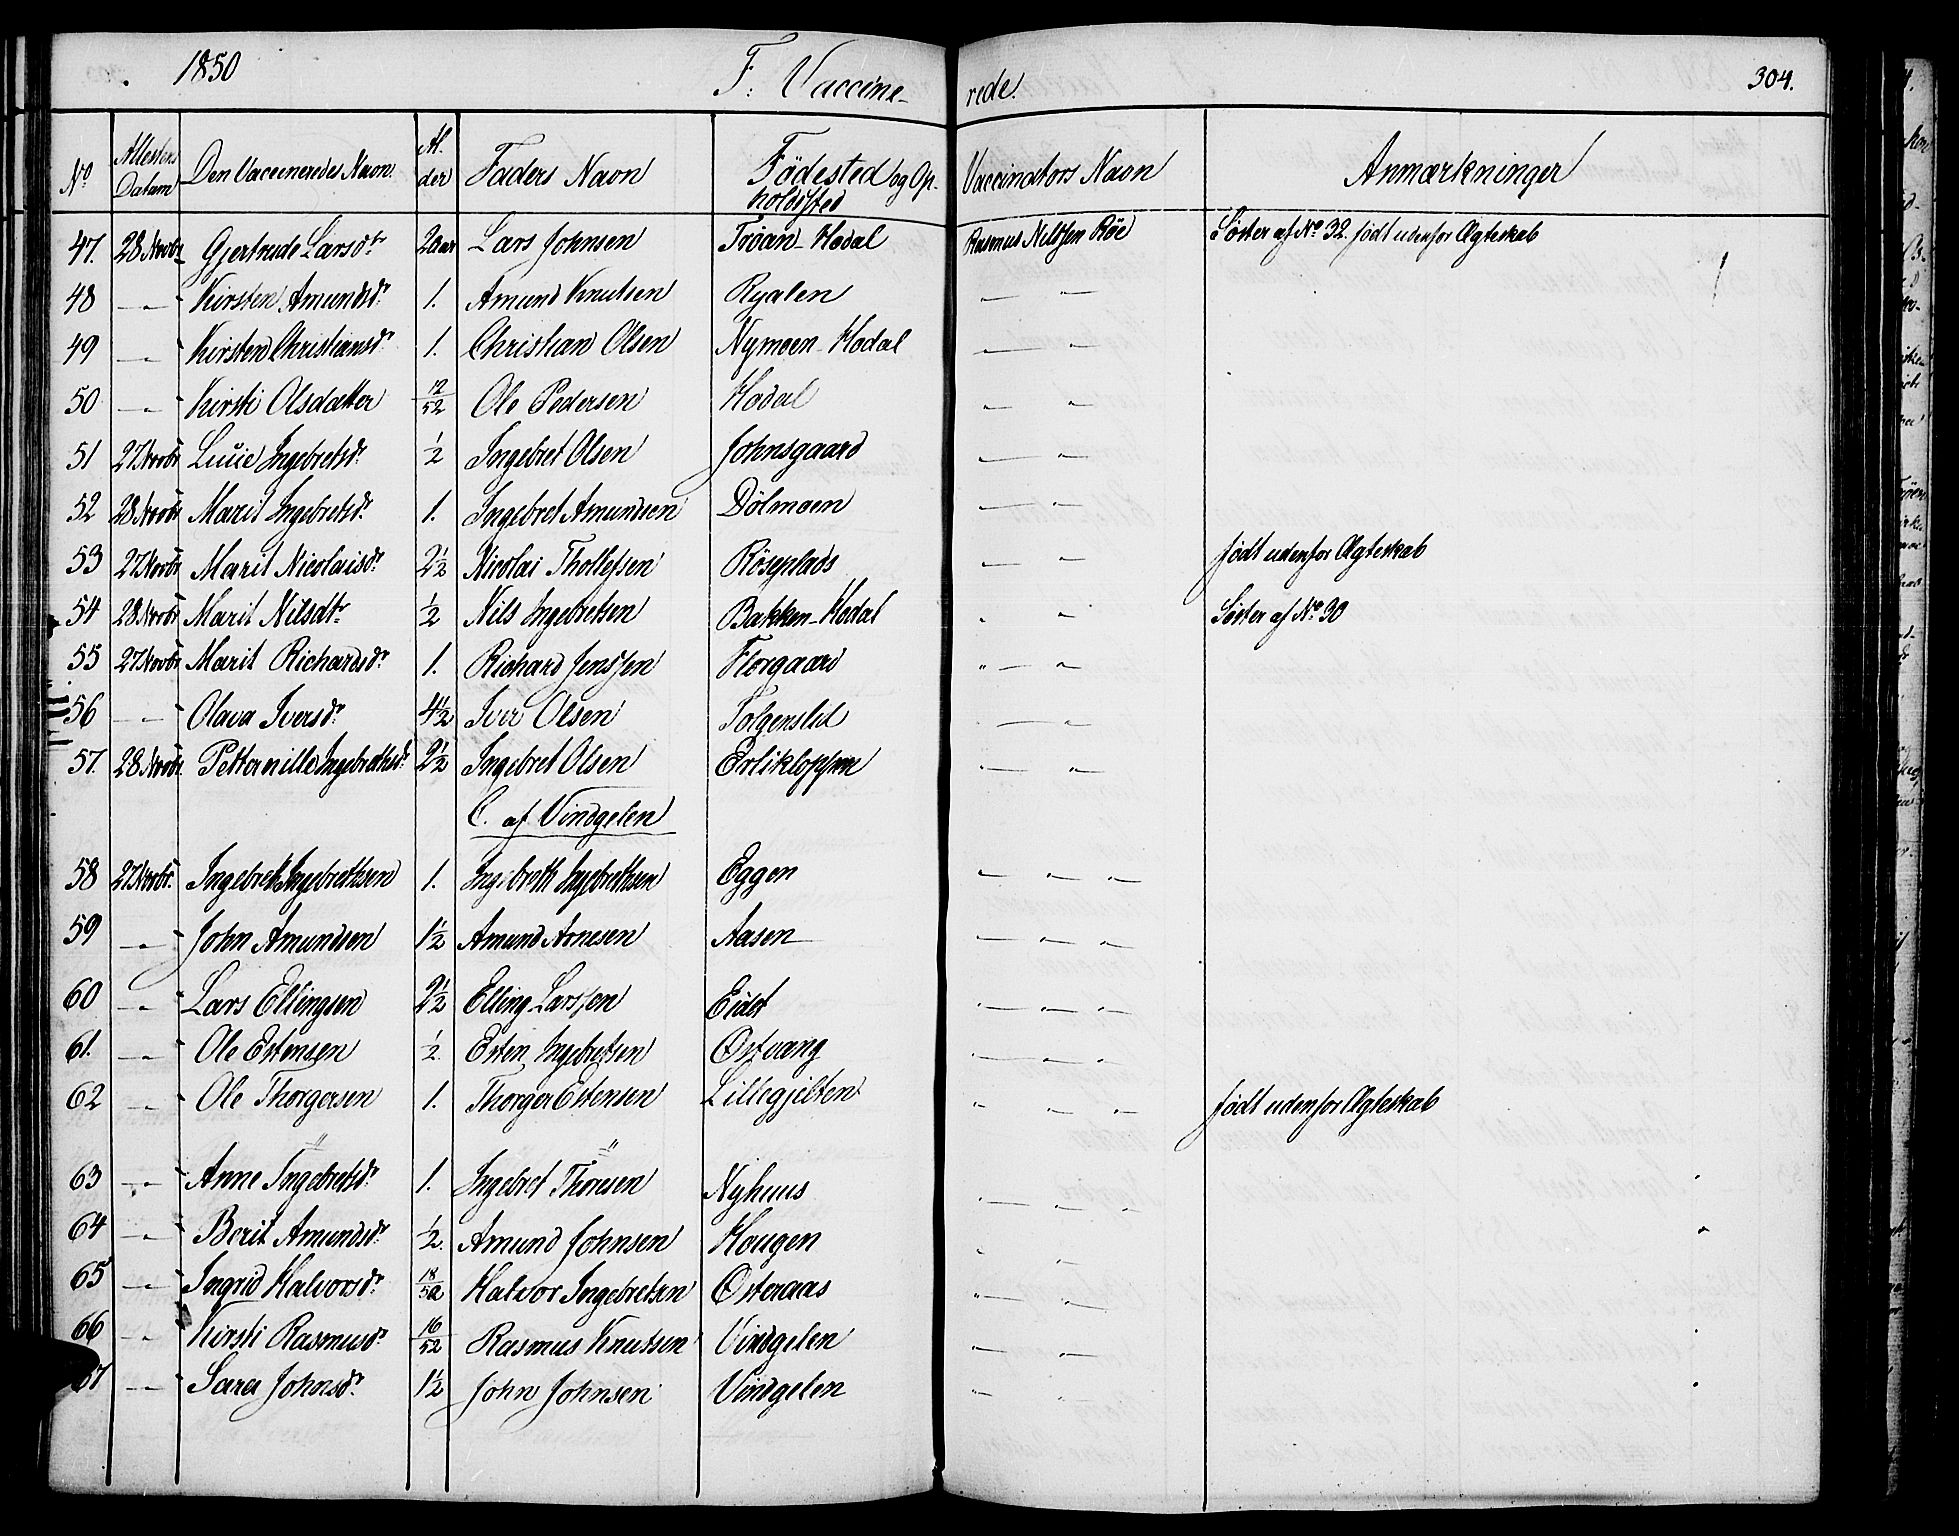 1850 F. Vaccine- rede. 304.
No Attestens Datum Den Vaccineredes Navn Al- der Faders Navn Födested og Op- holdssted Vaccinators Navn Anmærkninger
47. 28 Novbr Gjertrude Larsdtr 2 aar Lars Johnsen Trøan-Hodal Rasmus Nilssen Röe Söster af No 32. født udenfor Ægteskab
48 —〃— Kirsten Amundsdr. 1. Amund Knutsen Ryalen —〃—
49 —〃— Kirsten Christiansdr. 1. Christian Olsen Nymoen-Hodal —〃—
50 —〃— Kirsti Olsdatter 12/52 Ole Pedersen Hodal —〃—
51 27 Novbr Lucie Ingebretsdr. 1/2 Ingebret Olsen Johnsgaard —〃—
52 28 Novbr Marit Ingebretsdr. 1. Ingebret Amundsen Dölmoen —〃—
53 27 Novbr Marit Nicolaisdr. 2 1/2 Nicolai Thollefsen Röseplads —〃— født udenfor Ægteskab
54 28 Novbr Marit Nilsdtr. 1/2 Nils Ingebretsen Bakken-Hodal 〃 〃 Söster af No 30
55 27 Novbr Marit Richardsdr. 1. Richard Jenssen Florgaard 〃—〃
56 —〃— Olava Iversdr. 4 1/2 Iver Olsen Tolgenslid —〃—
57. 28 Novbr. Petternille Ingebrethsdr. 2 1/2 Ingebret Olsen Erlikloppen 〃—〃—
C. af Vindgelen
58 27 Novbr. Ingebreth Ingebrethsen 1. Ingebreth Ingebrethsen Eggen —〃—〃—
59 —〃— John Amundsen 1 1/2 Amund Arnesen Aasen —〃—〃—
60 —〃— Lars Ellingsen 2 1/2 Elling Larssen Eidet —〃—〃—
61. —〃— Ole Estensen 1/2. Esten Ingebretsen Østvang —〃—〃—
62 —〃— Ole Thorgersen 1. Thorger Estensen Lillegjelten 〃—〃—〃— født udenfor Ægteskab
〃 〃
63 —〃— Anne Ingebretsdr. 1. Ingebret Thoresen Nyhuus —〃—〃
64 —〃— Berit Amundsdr. 1/2. Amund Johnsen Hougen 〃 —〃—
65 —〃— Ingrid Halvorsdr. 18/52 Halvor Ingebretsen Østeraas 〃—〃—
66 —〃— Kirsti Rasmusdr. 16/52 Rasmus Knutsen Vindgelen —〃—
67 —〃— Sara Johnsdr. 1 1/2 John Johnsen Vindgelen —〃